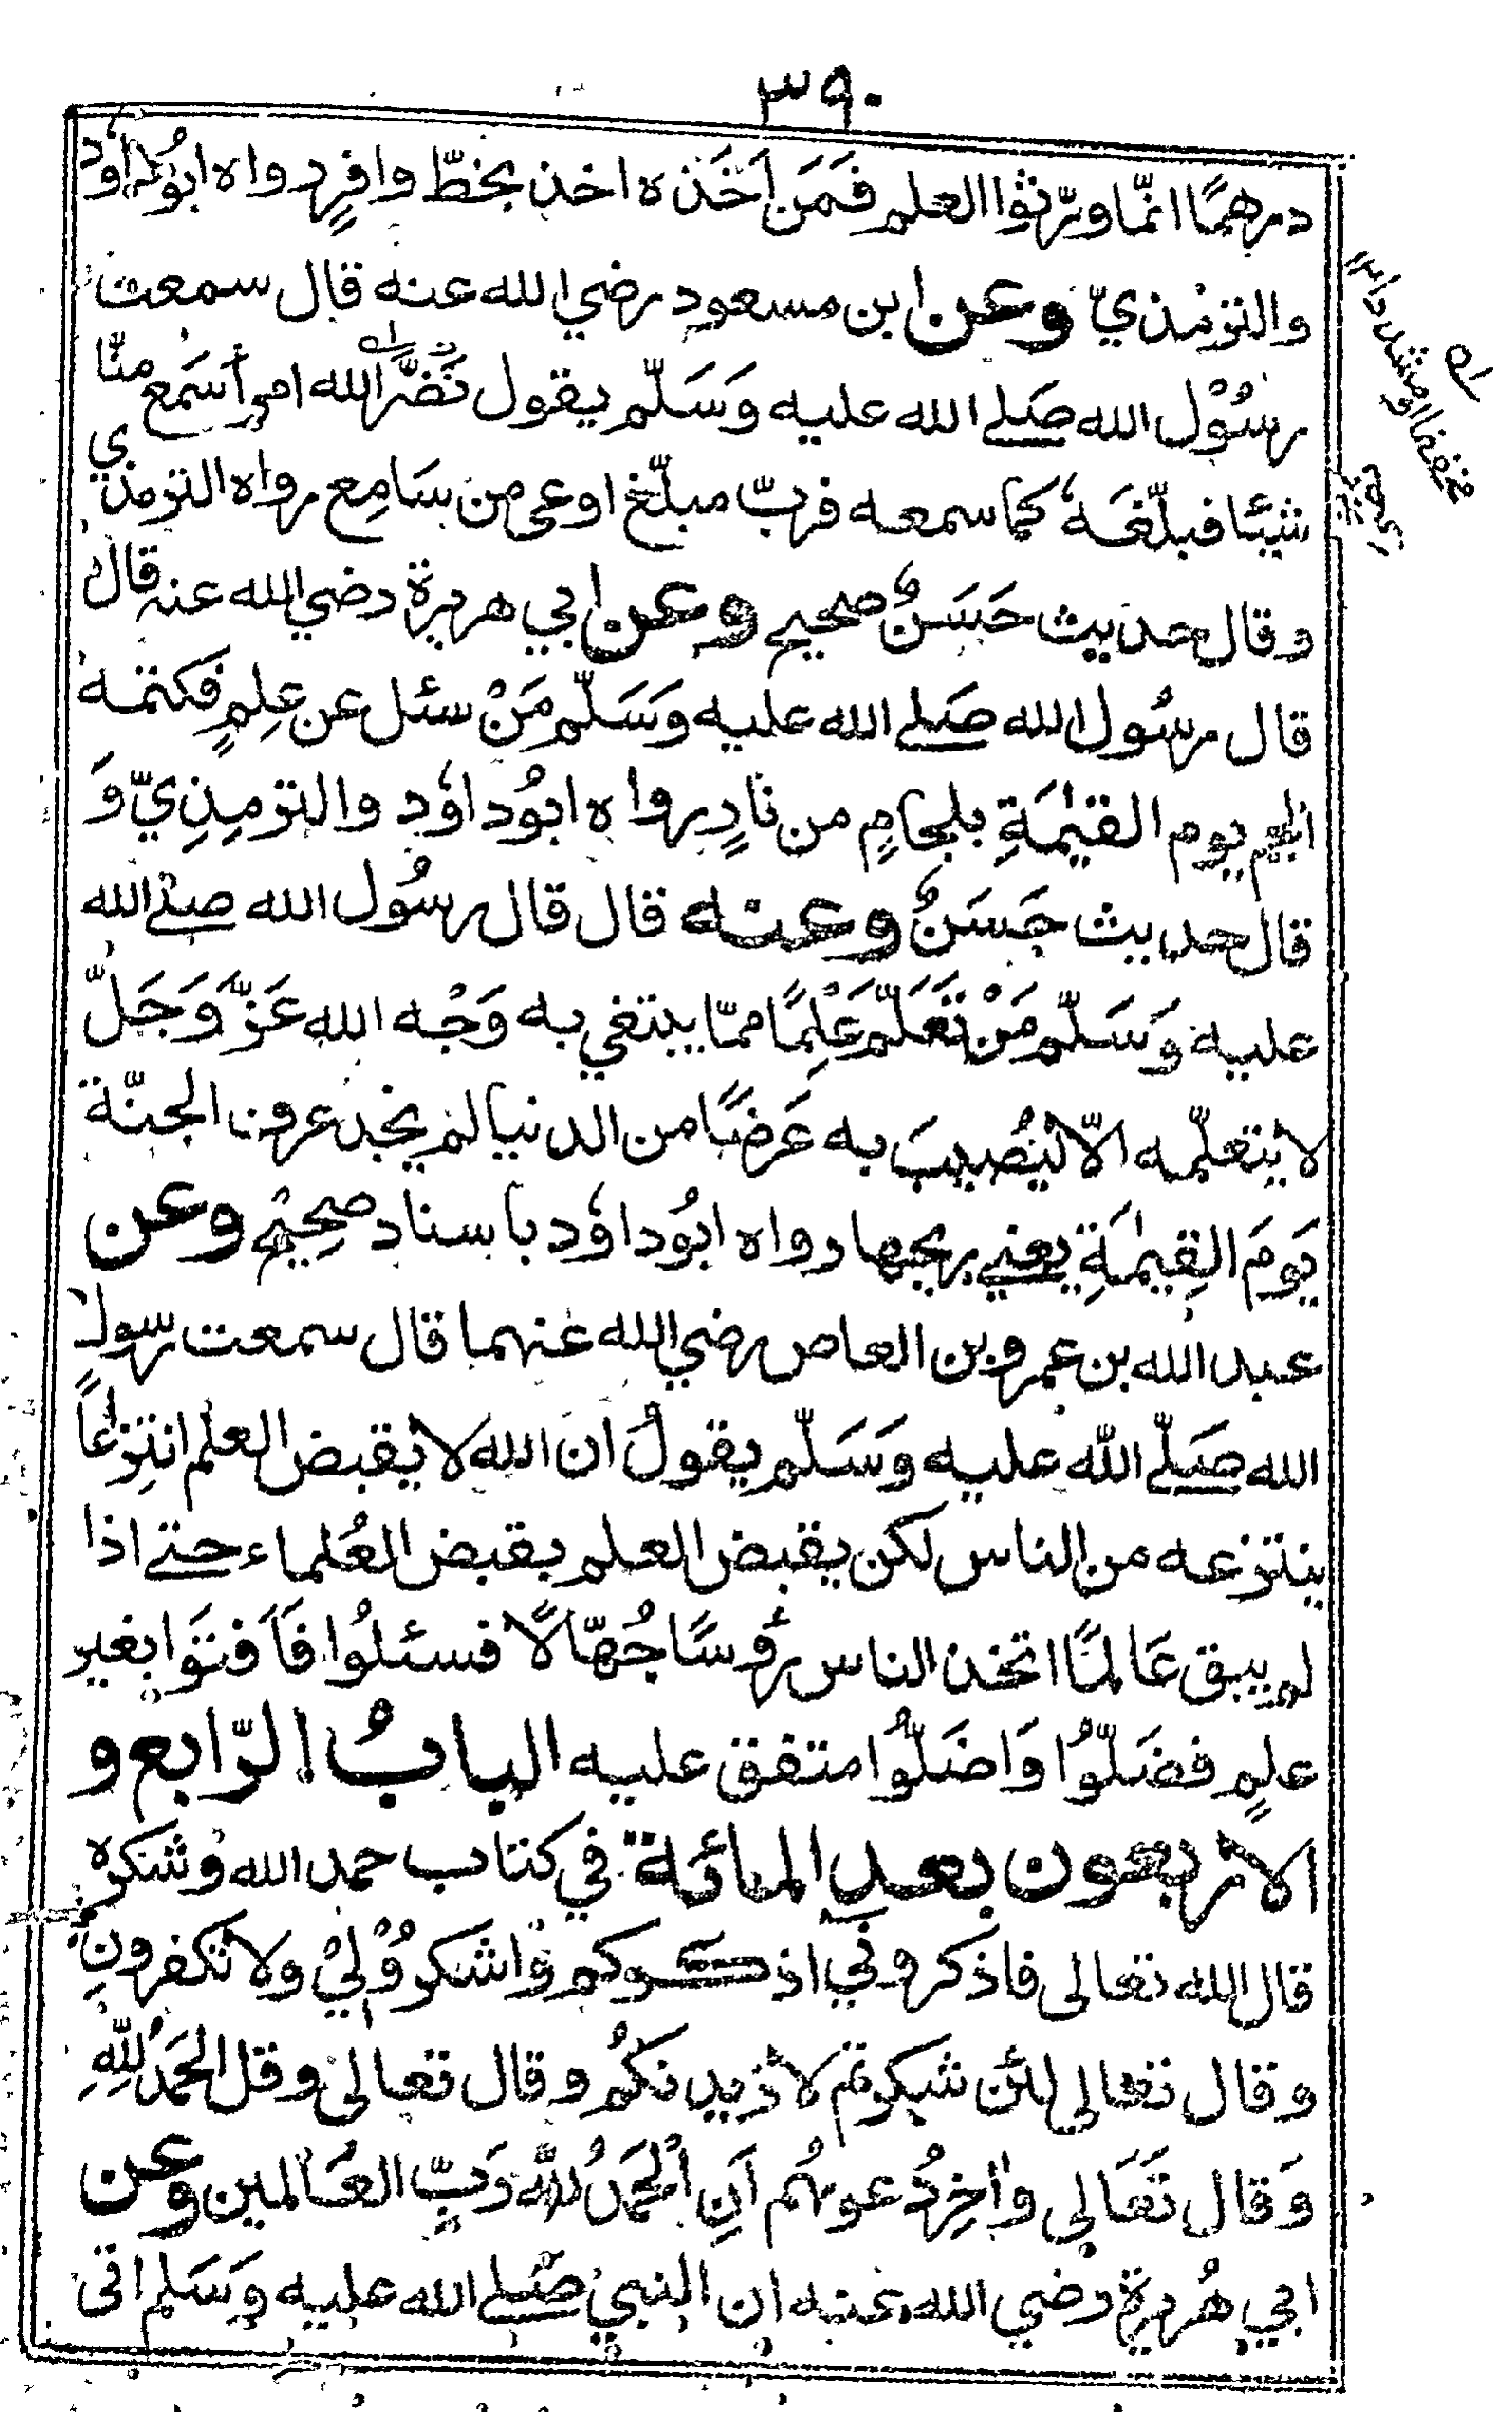 ٣٩٠
درهمًا انّما ورّثوا العلم فَمَن اَخَذه اخذ بحظّ وافرٍ رواه ابوُ داؤد
والترمذيّ وعن ابن مسعود رضي الله عنه قال سمعت
رسُوْل الله صَلے الله عليه وَسَلّم يقول نَضَّر الله امرأ سَمع منّا
شيئا فبلّغَهٗ كما سمعه فربّ مبلّغ اوعى من سَامِع رواه الترمذي
وقال حديث حَسَنٌ صحيح وعن ابي هريرة رضي الله عنه قال
قال رسُول الله صَلے الله عليه وَسَلّم مَنْ سئل عن عِلمٍ فكتمه
الجم يوم القيٰمَةِ بلجامٍ من نارٍ رواه ابوُداؤد والترمِذِيّ وَ
قال حديث حَسَنٌ وعنه قال قال رسُول الله صلے الله
عليه وَسَلّم مَنْ تَعَلَّمَ عَلِمًا ممّا يبتغي به وَجْه الله عَزّ وَجَلّ
لا يتعلّمه الّا ليُصيبَ به عَرَضًا من الدنيا لم يجد عرف الجنّة
يَومَ القِيٰمَةِ يعنے ريحها رواه ابوُداؤد باسناد صحِيْح وعن
عبد الله بن عمرو بن العاص رضي الله عنهما قال سمعت رسول
الله صَلّے الله عليه وَسَلّم يقولُ ان الله لا يقبض العلم انتزاعاً
ينتزعه من الناس لكن يقبض العلم بقبض العُلماء حتے اذا
لم يبق عَالمًا اتخذ الناس رؤسًا جُهّالًا فسئلُوا فَاَفتَوَا بغير
علمٍ فضَلّوُا وَاضَلّوُا متفق عليه البابُ الرّابع و
الاربعون بعد المائة في كتاب حمد الله وشكره
قال الله تعالى فاذكروني اذكركم وَاشكروُلِيْ ولا تكفرونِ
وقال تعالي لئن شكرتم لازيدنكُم وقال تعالى وقل الحَمدُ لِلّهِ
وَقال تَعَالى واٰخِرُ دعوٰىهُم اَنِ اْلحَمدُ لِلّه رَبّ العٰالمين وعن
ابي هُريرة رضي الله عنه ان النبي صَلے الله عليه وَسَلم اتى